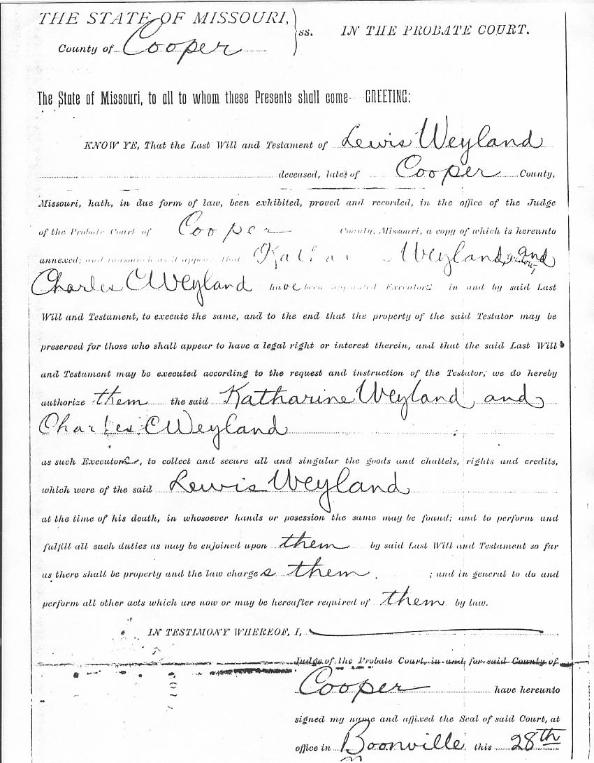 THE STATE OF MISSOURI, } ss. IN THE PROBATE COURT.
County of Cooper
The State of Missouri, to all to whom these Presents shall come— GREETING:
KNOW YE, That the Last Will and Testament of Lewis Weyland
deceased, late of Cooper County,
Missouri, hath, in due form of law, been exhibited, proved and recorded, in the office of the Judge
of the Probate Court of Cooper County, Missouri, a copy of which is hereunto
annexed; and appear that Weyland and
Charles C Weyland have been appointed Executors in and by said Last
Will and Testament, to execute the same, and to the end that the property of the said Testator may be
preserved for those who shall appear to have a legal right or interest therein, and that the said Last Will
and Testament may be executed according to the request and instruction of the Testator, we do hereby
authorize them the said Katharine Weyland and
Charles C Weyland
as such Executors, to collect and secure all and singular the goods and chattels, rights and credits,
which were of the said Lewis Weyland
at the time of his death, in whosoever hands or posession the same may be found; and to perform and
fulfill all such duties as may be enjoined upon them by said Last Will and Testament so far
as there shall be property and the law charges them ; and in general to do and
perform all other acts which are now or may be hereafter required of them by law.
IN TESTIMONY WHEREOF, I,
Judge of the Probate Court, in and for said County of
Cooper have hereunto
signed my name and affixed the Seal of said Court, at
office in Boonville this 28th